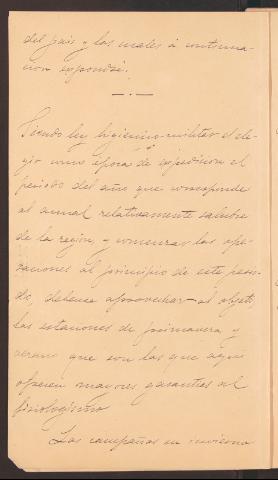 del país y los cuales á continua-
cion espondré.
Siendo ley higiénico-militar el ele-
gir como época de expedicion el
periodo del año que corresponde
al anual relativamente salubre
de la region, y comenzar las ope-
raciones al principio de este perio-
do, debense aprovechar al objeto
las estaciones de primavera y
verano que son las que aquí
ofrecen mayores garantías al
fisiologismo
Las campañas en invierno